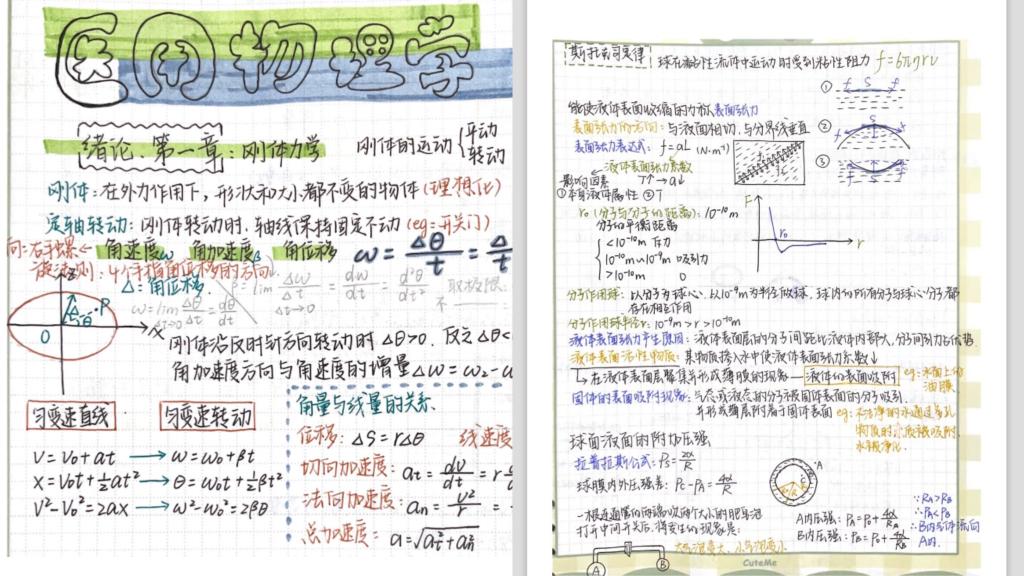 医用物理学
绪论、第一章：刚体力学
刚体的运动 { 平动 转动
刚体：在外力作用下，形状和大小都不变的物体（理想化）
定轴转动：刚体转动时，轴线保持固定不动（eg：开关门）
角速度ω 角加速度β 角位移
ω = Δθ/t = Δ/t
四个手指角位移的方向
Δ：角位移
ω = lim Δθ/Δt = dθ/dt
Δt→0
β = lim Δω/Δt = dω/dt = d²θ/dt²
Δt→0
θ P
O X
刚体沿逆时针方向转动时 Δθ>0，反之Δθ<
角加速度方向与角速度的增量Δω=ω₂-ω
匀变速直线 匀变速转动
V=V₀+at → ω=ω₀+βt
X=V₀t+½at² → θ=ω₀t+½βt²
V²-V₀²=2ax → ω²-ω₀²=2βθ
角量与线量的关系
位移：ΔS=rΔθ 线速度
切向加速度：at = dv/dt = r
法向加速度：an = v²/r =
总加速度：a=√(at²+an²)
斯托克司定律 球在黏性流体中运动时受到粘性阻力 f=6πηrv
能使液体表面收缩的力称表面张力
表面张力的方向：与液面相切，与分界线垂直
表面张力表达式：f=αL (N·m⁻¹)
液体表面张力系数
影响因素 T↑→α↓
①本身液体属性 ②T
①
②
③
f S f
r₀（分子与分子的距离）：10⁻¹⁰m
分子的平衡距离
<10⁻¹⁰m 斥力
10⁻¹⁰m~10⁻⁹m 吸引力
>10⁻⁹m 0
F
r₀ r
分子作用球：以分子为球心，以10⁻⁹m为半径做球，球内的所有分子与球心分子都
存在相互作用
分子作用球半径r：10⁻⁹m>r>10⁻¹⁰m
液体表面张力产生原因：液体表面层的分子间距比液体内部大，分子间引力占优势
液体表面活性物质：某物质掺入水中使液体表面张力系数↓
↳在液体表面层聚集并形成薄膜的现象——液体的表面吸附 eg：水面上的
油膜
固体的表面吸附现象：气态或液态的分子被固体表面的分子吸引
并形成薄层附着于固体表面
eg：不洁净的水通过多孔
物质时杂质被吸附，
水被净化
球面液面的附加压强
拉普拉斯公式：Ps=2α/R
球膜内外压强差：Pc-PA=4α/R
A
B
C
一根连通管的两端吹两个大小的肥皂泡
打开中间开关后，将发生的现象是：
大泡变大，小泡变小
A B
A内压强：PA=P₀+4α/RA
B内压强：PB=P₀+4α/RB
∵RA>RB
∴PA<PB
∴B内气体流向
A内
CuteMe